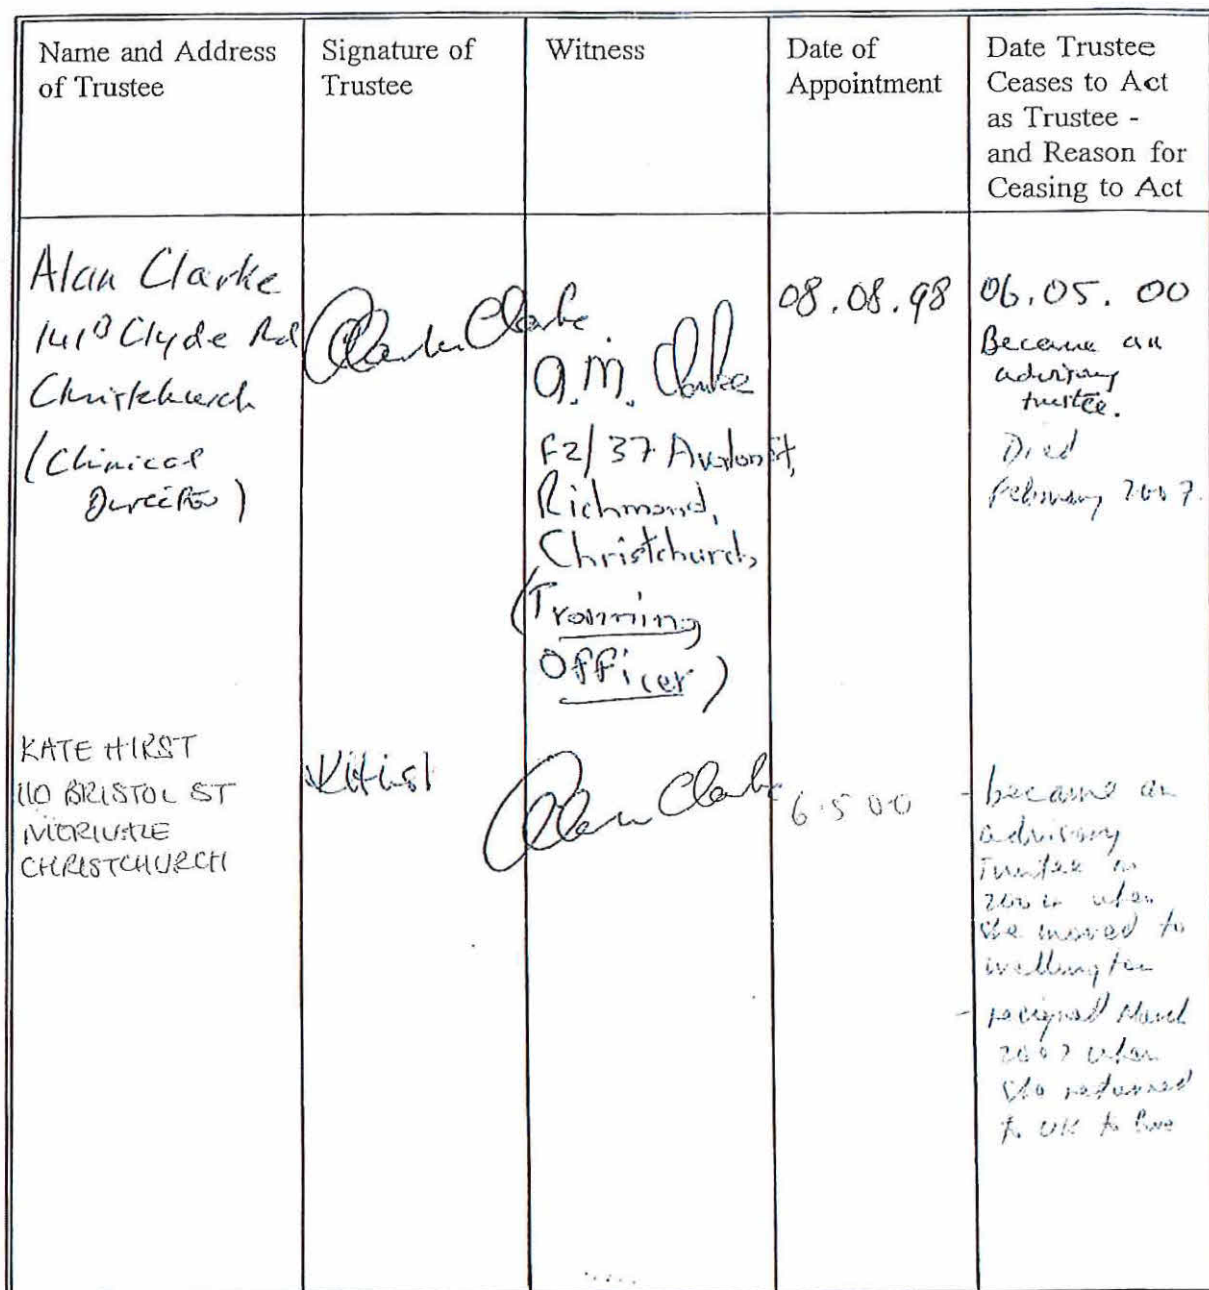 Name and Address
of Trustee
Signature of
Trustee
Witness
Date of
Appointment
Date Trustee
Ceases to Act
as Trustee -
and Reason for
Ceasing to Act
Alan Clarke
141B Clyde Rd
Christchurch
(Clinical
Director)
Alan Clarke
A.M. Clarke
F2/37 Avalon St,
Richmond,
Christchurch,
(Training
Officer)
08.08.98
06.05.00
Became an
advisory
trustee.
Died
February 2007.
KATE HIRST
110 BRISTOL ST
MERIVALE
CHRISTCHURCH
KHirst
Alan Clarke
6.5.00
- became an
advisory
Trustee in
when
she moved to
Wellington
- resigned March
2007 when
she returned
to UK to live